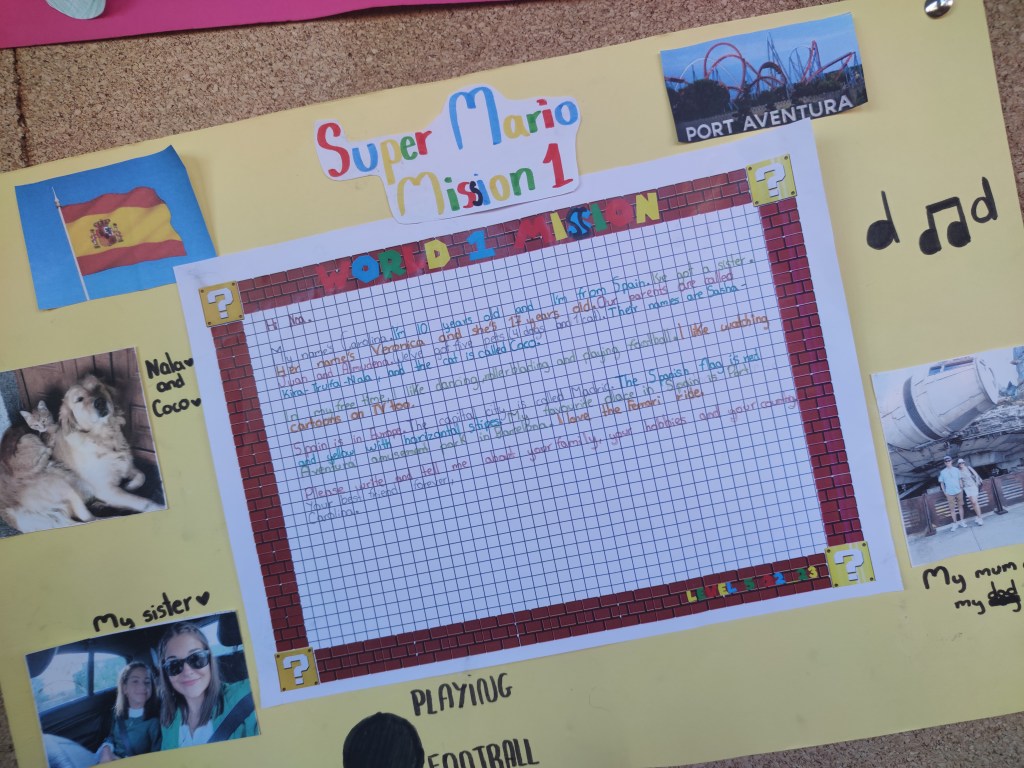 Super Mario
Mission 1
PORT AVENTURA
WORLD 1 MISSION
Hi Ira,
My name's Carolina. I'm 10 years old and I'm from Spain. I've got a sister.
Her name's Veronica and she's 17 years old. Our parents are called
Juan and Alexandra. We've got five pets (4 dogs and 1 cat). Their names are Sasha-
Kira-Trufa-Nala, and the cat is called Coco.
In my free time, I like dancing, rollerblading and playing football. I like watching
cartoons on TV too.
Spain is in Europe. The capital city is called Madrid. The Spanish flag is red
and yellow with horizontal stripes. My favourite place in Spain is Port
Aventura amusement park in Barcelona. I love the Ferrari ride!
Please, write and tell me about your family, your hobbies and your country.
Your best friend forever,
Carolina.
Nala
and
Coco
My sister
My mum
my
PLAYING
FOOTBALL